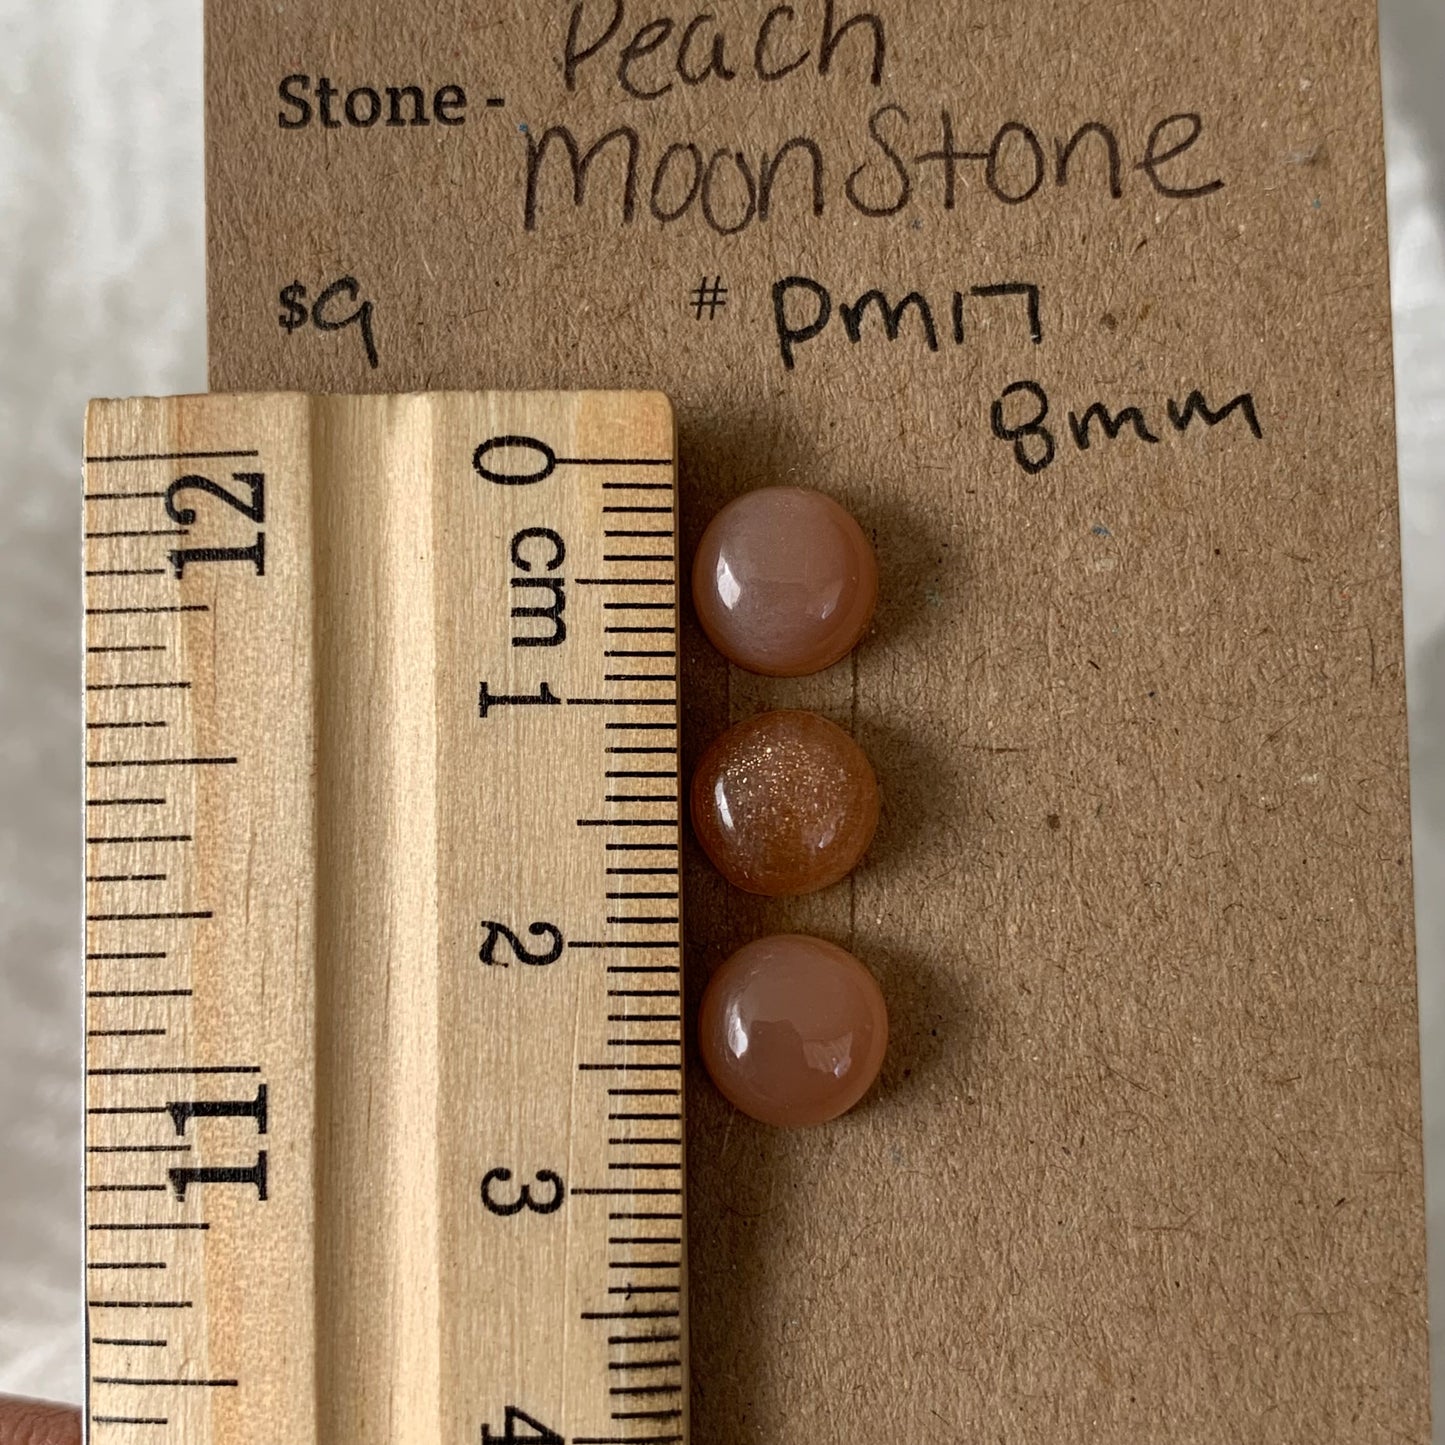 Peach
Stone - Moonstone
$9 # PM17
8mm
0 cm 1 2 3 4
12 11